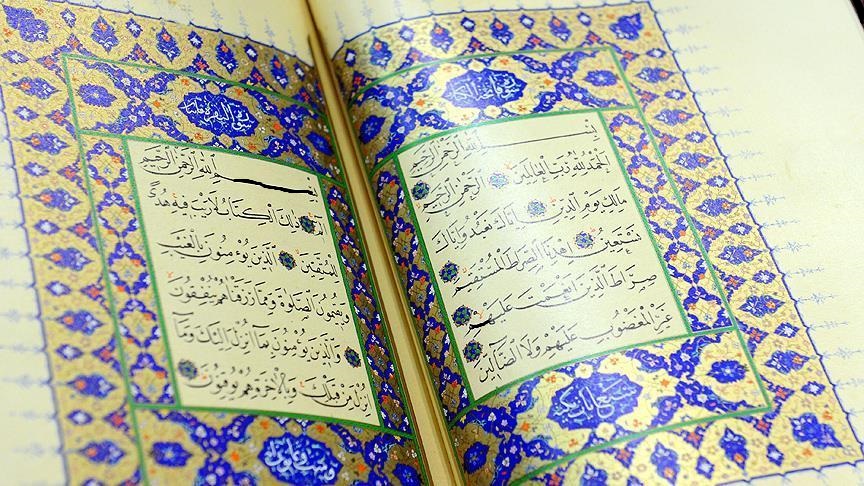 بِسْمِ اللهِ الرَّحْمٰنِ الرَّحِيمِ
اَلْحَمْدُ لِلهِ رَبِّ الْعَالَمِينَ اَلرَّحْمٰنِ الرَّحِيمِ
مَالِكِ يَوْمِ الدِّينِ اِيَّاكَ نَعْبُدُ وَاِيَّاكَ
نَسْتَعِينُ اِهْدِنَا الصِّرَاطَ الْمُسْتَقِيمَ
صِرَاطَ الَّذِينَ اَنْعَمْتَ عَلَيْهِمْ
غَيْرِ الْمَغْضُوبِ عَلَيْهِمْ وَلَا الضَّالِّينَ
سورة البقرة مائتان
بِسْمِ اللهِ الرَّحْمٰنِ الرَّحِيمِ
الٓمٓ ذٰلِكَ الْكِتَابُ لَا رَيْبَ فِيهِ هُدًى
لِلْمُتَّقِينَ اَلَّذِينَ يُؤْمِنُونَ بِالْغَيْبِ
وَيُقِيمُونَ الصَّلٰوةَ وَمِمَّا رَزَقْنَاهُمْ يُنْفِقُونَ
وَالَّذِينَ يُؤْمِنُونَ بِمَا اُنْزِلَ اِلَيْكَ وَمَا
اُنْزِلَ مِنْ قَبْلِكَ وَبِالْاٰخِرَةِ هُمْ يُوقِنُونَ